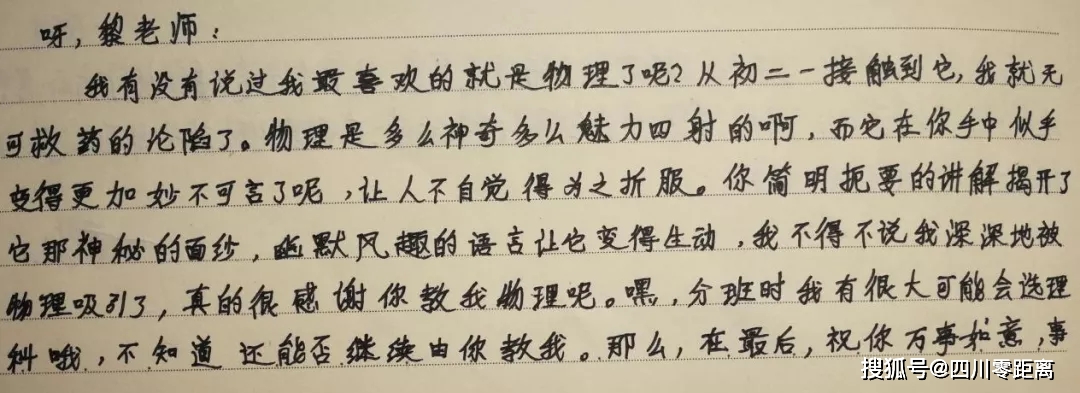 呀,黎老师:
我有没有说过我最喜欢的就是物理了呢?从初二一接触到它,我就无
可救药的沦陷了。物理是多么神奇多么魅力四射的啊,而它在你手中似乎
变得更加妙不可言了呢,让人不自觉得为之折服。你简明扼要的讲解揭开了
它那神秘的面纱,幽默风趣的语言让它变得生动,我不得不说我深深地被
物理吸引了,真的很感谢你教我物理呢。嘿,分班时我有很大可能会选理
科哦,不知道还能否继续由你教我。那么,在最后,祝你万事如意,事
搜狐号@四川零距离